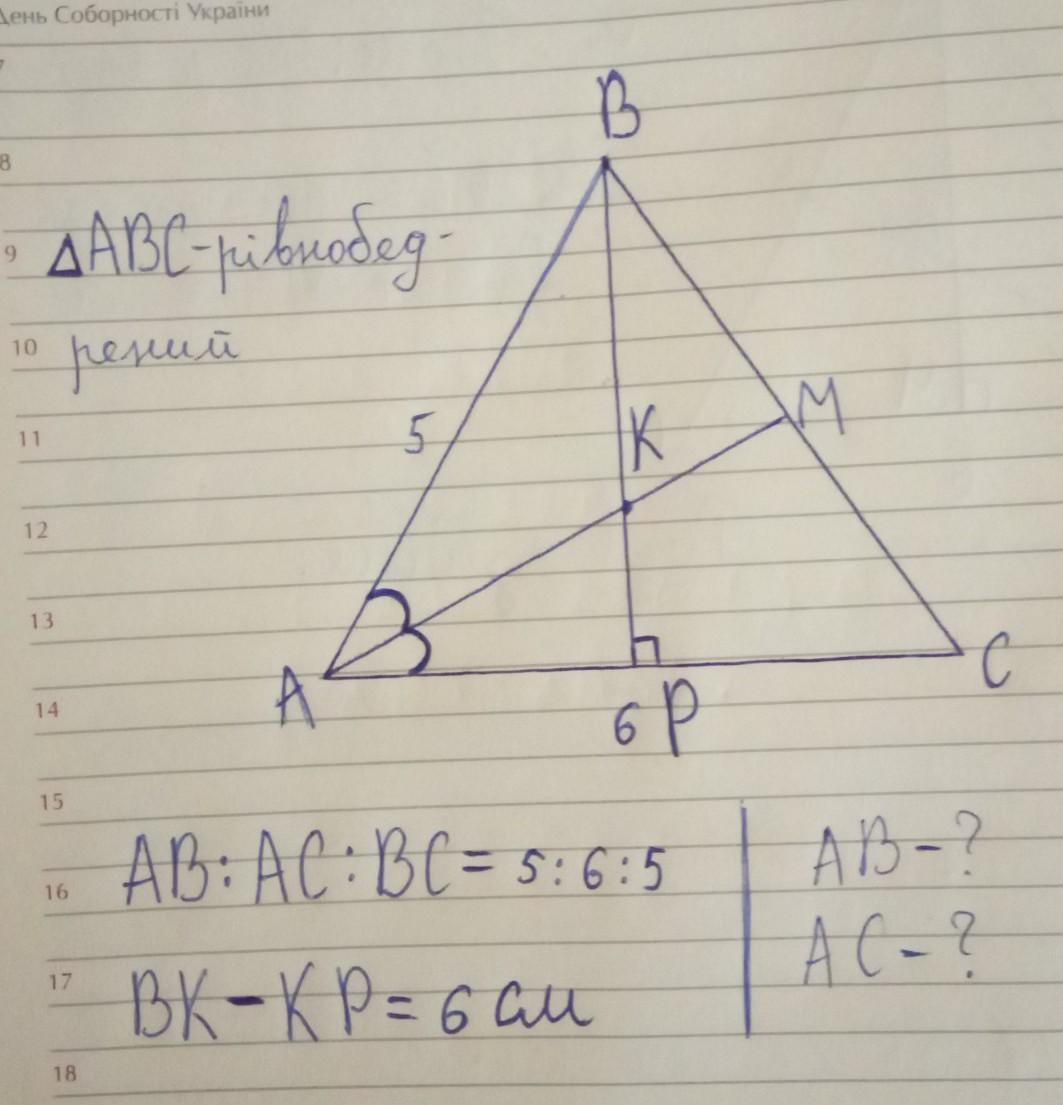 День Соборності України
7
B
8
9 ΔABC-рівнобед-
10 рений
5
M
11
K
12
13
A
C
14
6 P
15
AB:AC:BC= 5:6:5
AB-?
16
AC-?
17
BK-KP= 6 см
18